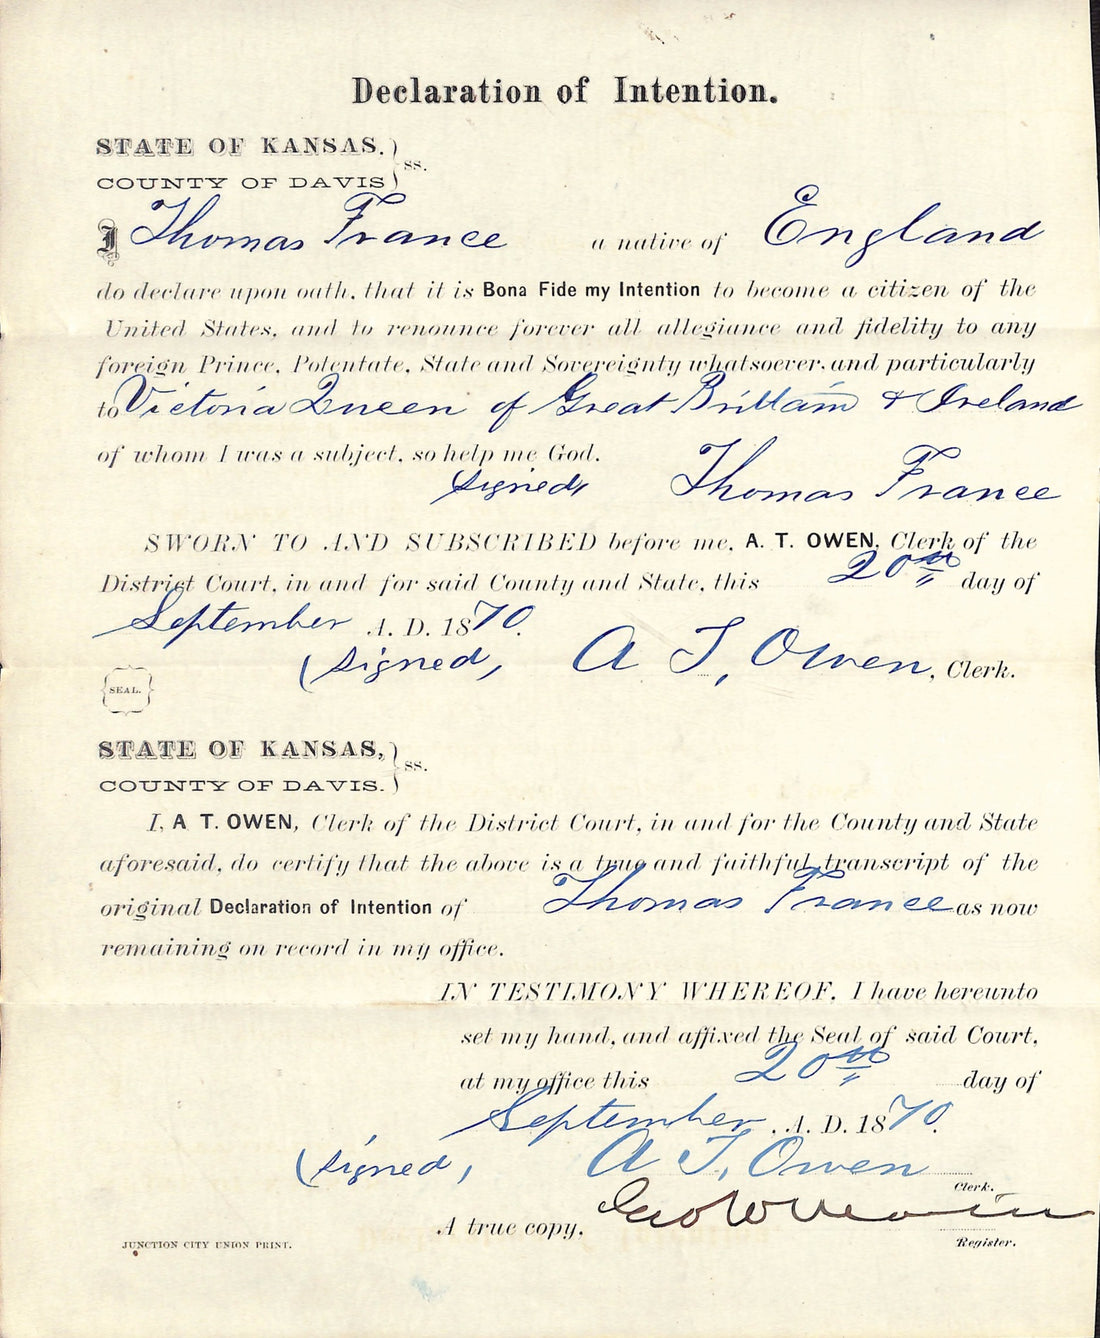 Declaration of Intention.
STATE OF KANSAS, } ss.
COUNTY OF DAVIS
I Thomas France a native of England
do declare upon oath, that it is Bona Fide my Intention to become a citizen of the
United States, and to renounce forever all allegiance and fidelity to any
foreign Prince, Potentate, State and Sovereignty whatsoever, and particularly
to Victoria Queen of Great Brittain & Ireland
of whom I was a subject, so help me God.
signed, Thomas France
SWORN TO AND SUBSCRIBED before me, A. T. OWEN, Clerk of the
District Court, in and for said County and State, this 20th day of
September A. D. 1870.
(signed, A T, Owen, Clerk.
SEAL.
STATE OF KANSAS, } ss.
COUNTY OF DAVIS.
I, A T. OWEN, Clerk of the District Court, in and for the County and State
aforesaid, do certify that the above is a true and faithful transcript of the
original Declaration of Intention of Thomas France as now
remaining on record in my office.
IN TESTIMONY WHEREOF, I have hereunto
set my hand, and affixed the Seal of said Court,
at my office this 20th day of
September, A. D. 1870.
(signed, A T, Owen
Clerk.
A true copy, Geo W
Register.
JUNCTION CITY UNION PRINT.